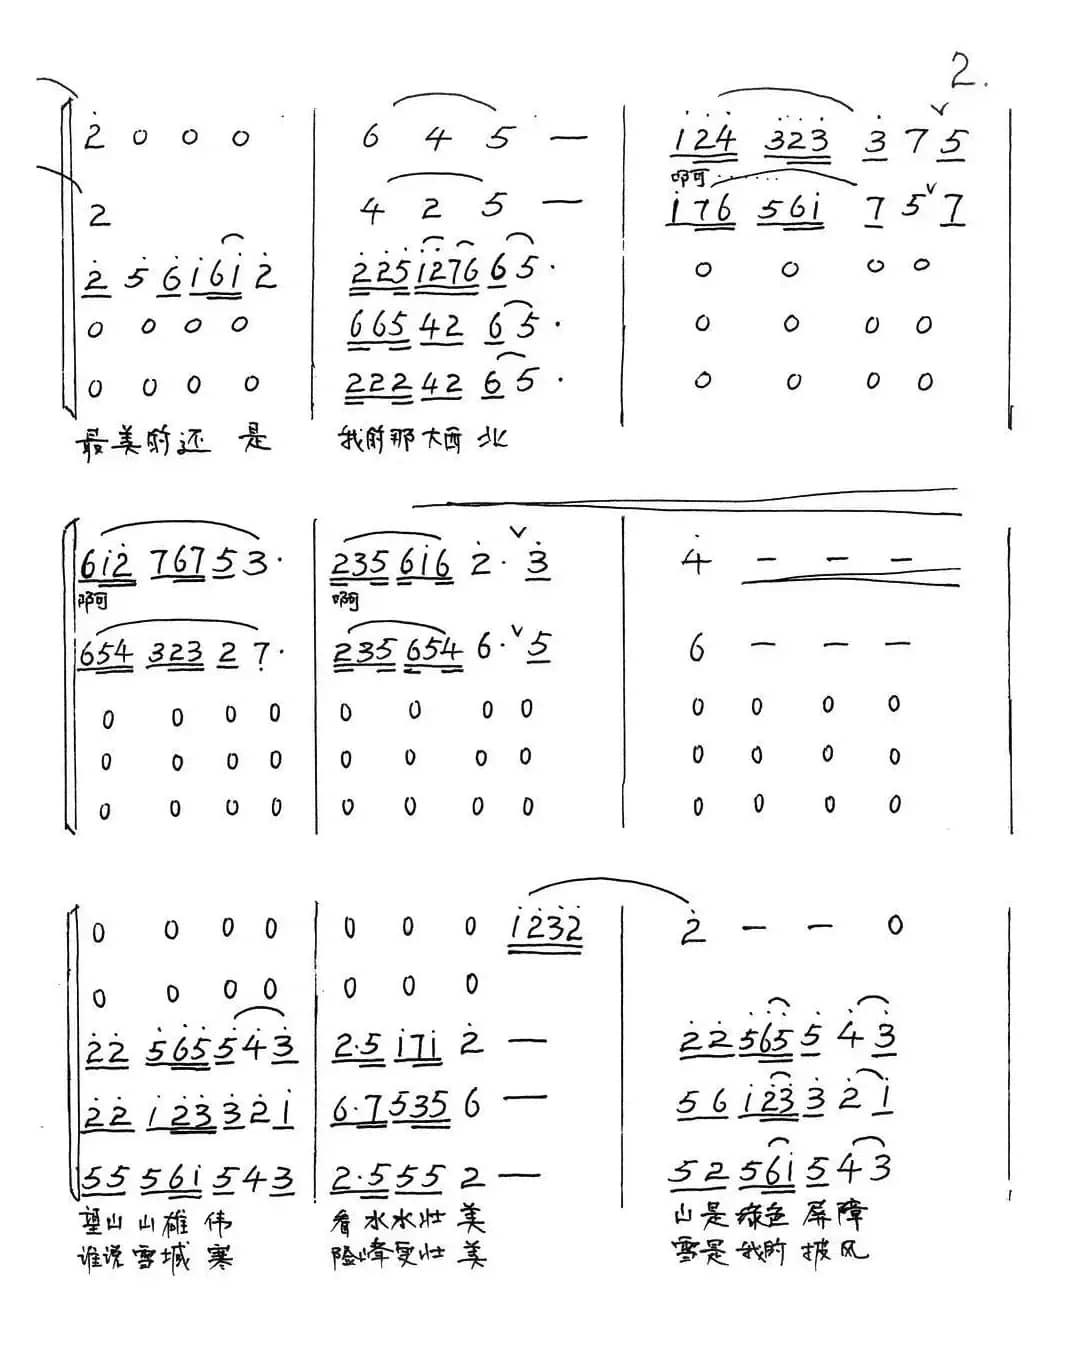 2.
2 0 0 0 6 4 5 — 124 323 3 7 5
啊
2 4 2 5 — 176 561 7 5 7
2 5 6 1 61 2 225 1276 6 5 · 0 0 0 0
0 0 0 0 665 42 6 5 · 0 0 0 0
0 0 0 0 222 42 6 5 · 0 0 0 0
最美的还是 我的那大西北
612 767 5 3 · 235 616 2 · 3 4 — — —
啊 啊
654 323 2 7 · 235 654 6 · 5 6 — — —
0 0 0 0 0 0 0 0 0 0 0 0
0 0 0 0 0 0 0 0 0 0 0 0
0 0 0 0 0 0 0 0 0 0 0 0
0 0 0 0 0 0 0 1232 2 — — 0
0 0 0 0 0 0 0
22 565 5 4 3 2·5 171 2 — 22 565 5 4 3
22 123 3 2 1 6·7 535 6 — 56 123 3 2 1
55 561 5 4 3 2·5 55 2 — 52 561 5 4 3
望山山雄伟 看水水壮美 山是绿色屏障
谁说雪域寒 险峰更壮美 雪是我的披风